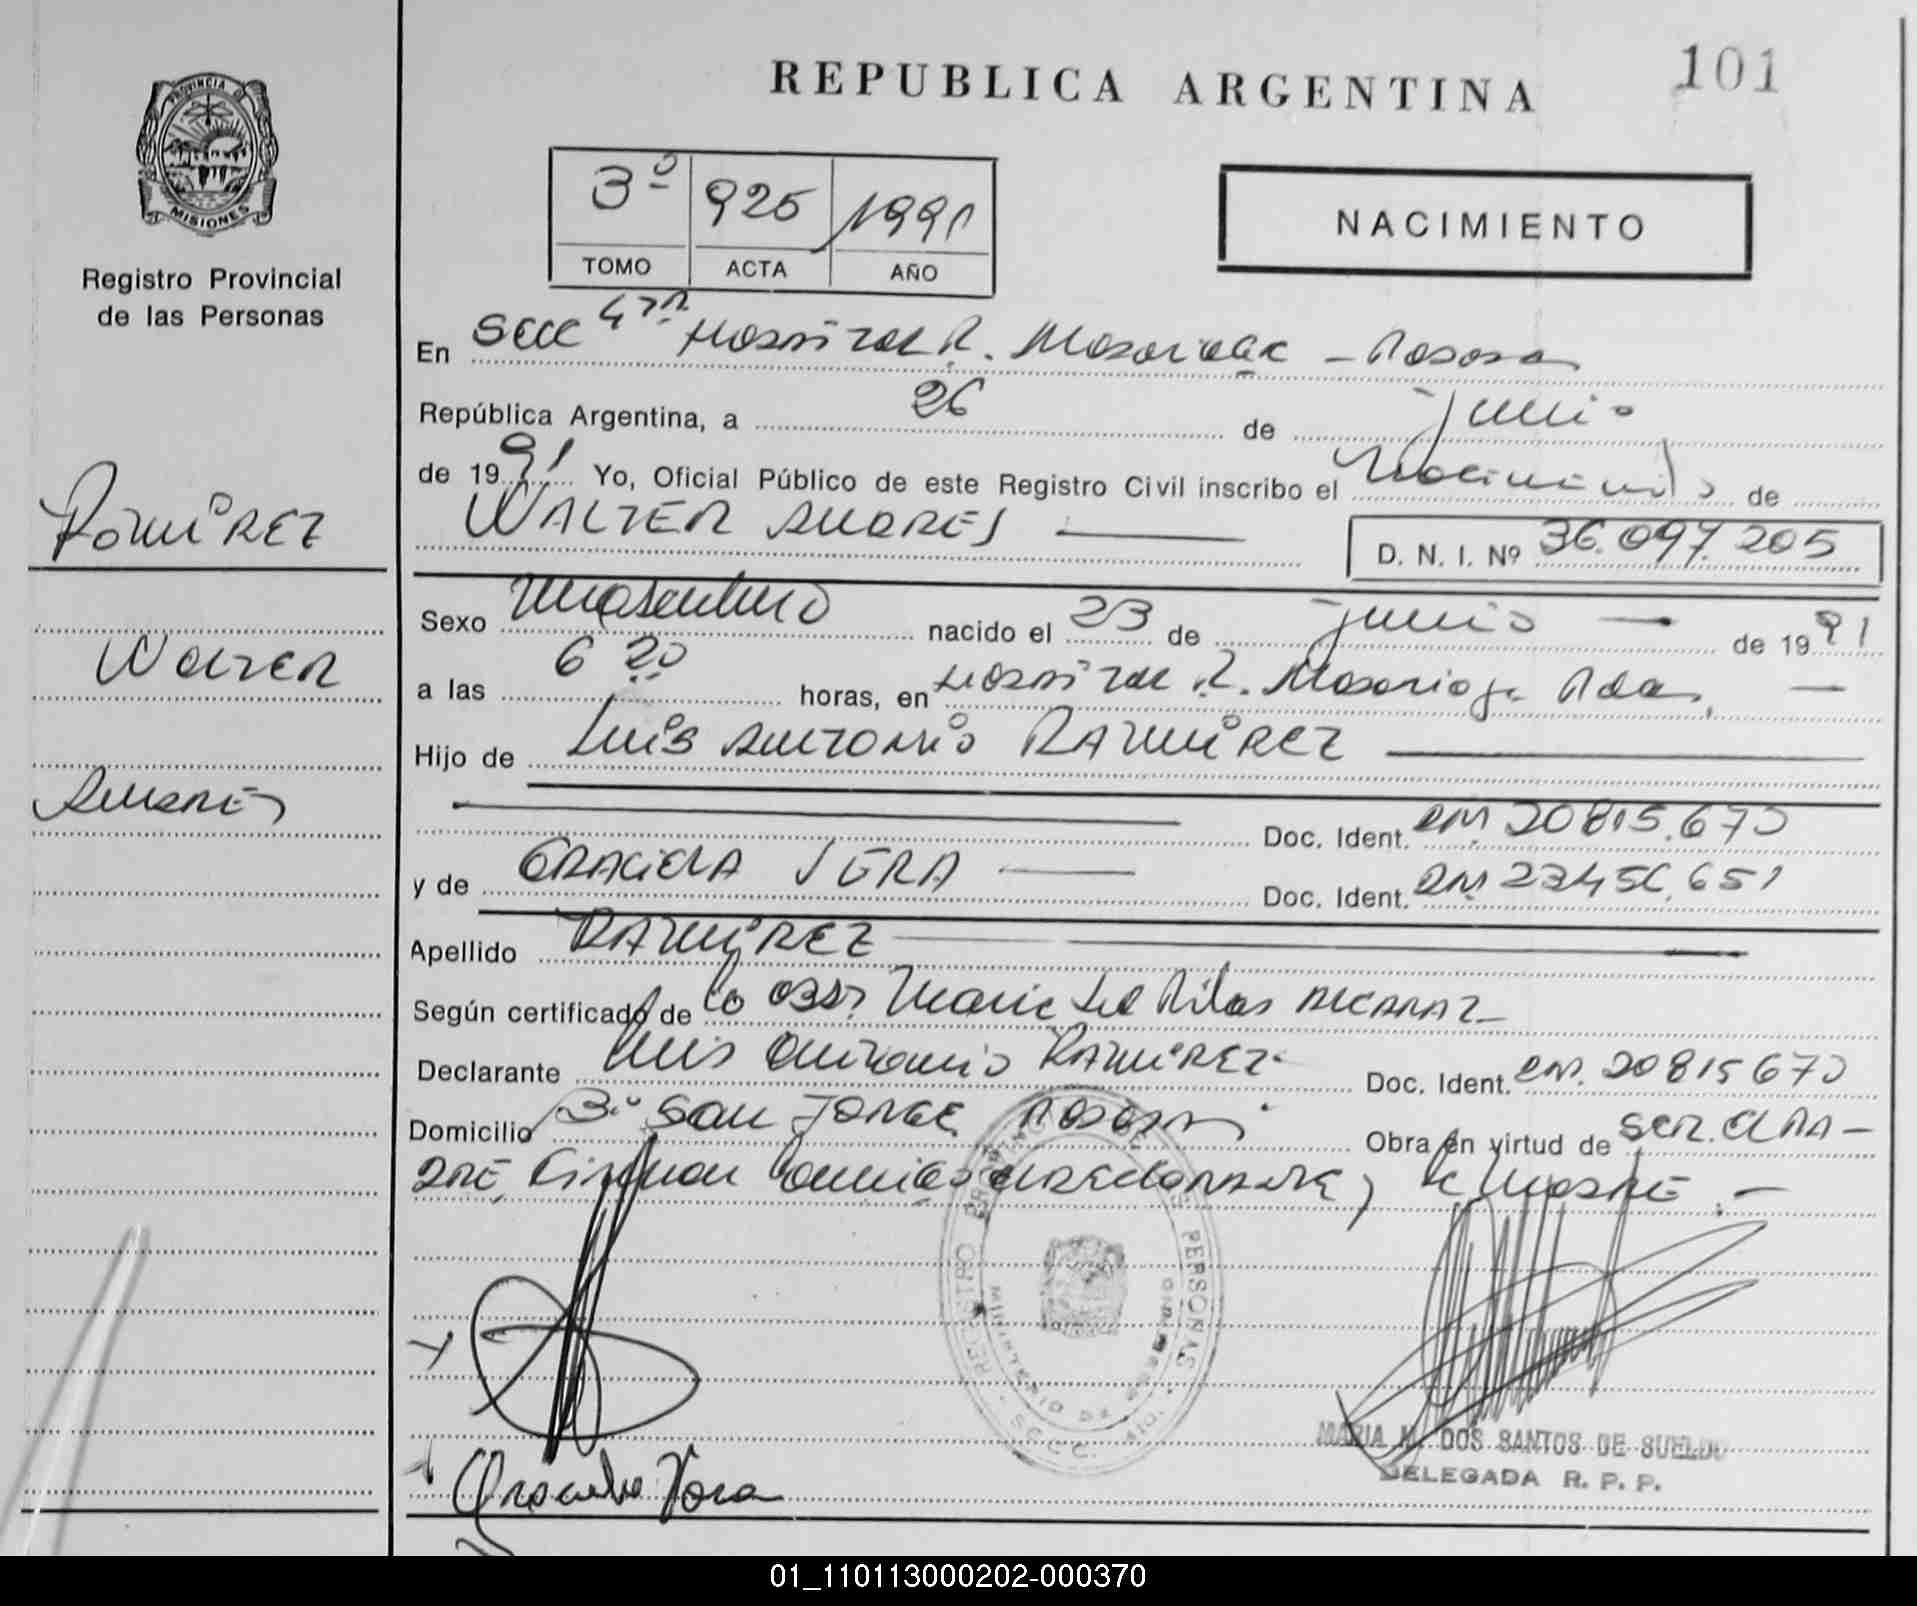 REPUBLICA ARGENTINA
101
PROVINCIA DE
MISIONES
Registro Provincial
de las Personas
3º 925 1991
TOMO ACTA AÑO
NACIMIENTO
En Secc 4ta Hospital R. Madariaga - Posadas
República Argentina, a 26 de junio
de 1991 Yo, Oficial Público de este Registro Civil inscribo el Nacimiento de
WALTER ANDRES
D. N. I. Nº 36.097.205
RAMIREZ
Walter
Andres
Sexo Masculino nacido el 23 de junio de 1991
a las 6 20 horas, en Hospital R. Madariaga Pdas,
Hijo de Luis Antonio RAMIREZ
Doc. Ident. DNI 20815.670
y de GRACIELA VERA Doc. Ident. DNI 23456.651
Apellido RAMIREZ
Según certificado de la Obst. Maria del Pilar ALCARAZ
Declarante Luis Antonio RAMIREZ Doc. Ident. DNI. 20815670
Domicilio Bº San JORGE Posadas Obra en virtud de SER EL PA-
DRE, Firman declarante y la Madre.-
REGISTRO PERSONAS
MINISTERIO DE
Graciela Vera
MARIA M. DOS SANTOS DE SUELDO
DELEGADA R. P. P.
01_110113000202-000370